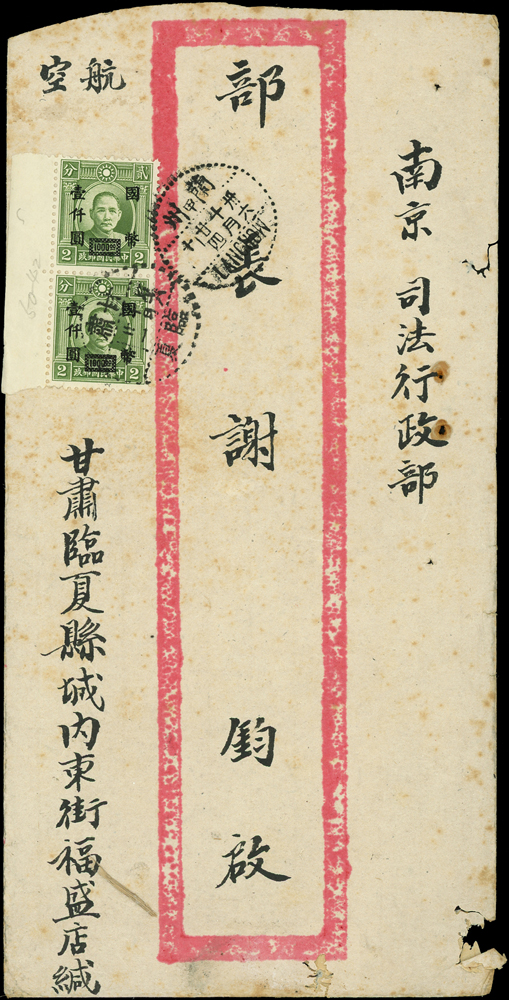 南京 司法行政部
部長謝鈞啟
航空
甘肅臨夏縣城內東街福盛店緘
貳分
國幣
壹仟圓
1000.00
2 中華民國郵政 2
分
國幣
壹仟圓
1000.00
2 中華民國郵政 2
蘭州
臨夏
5042